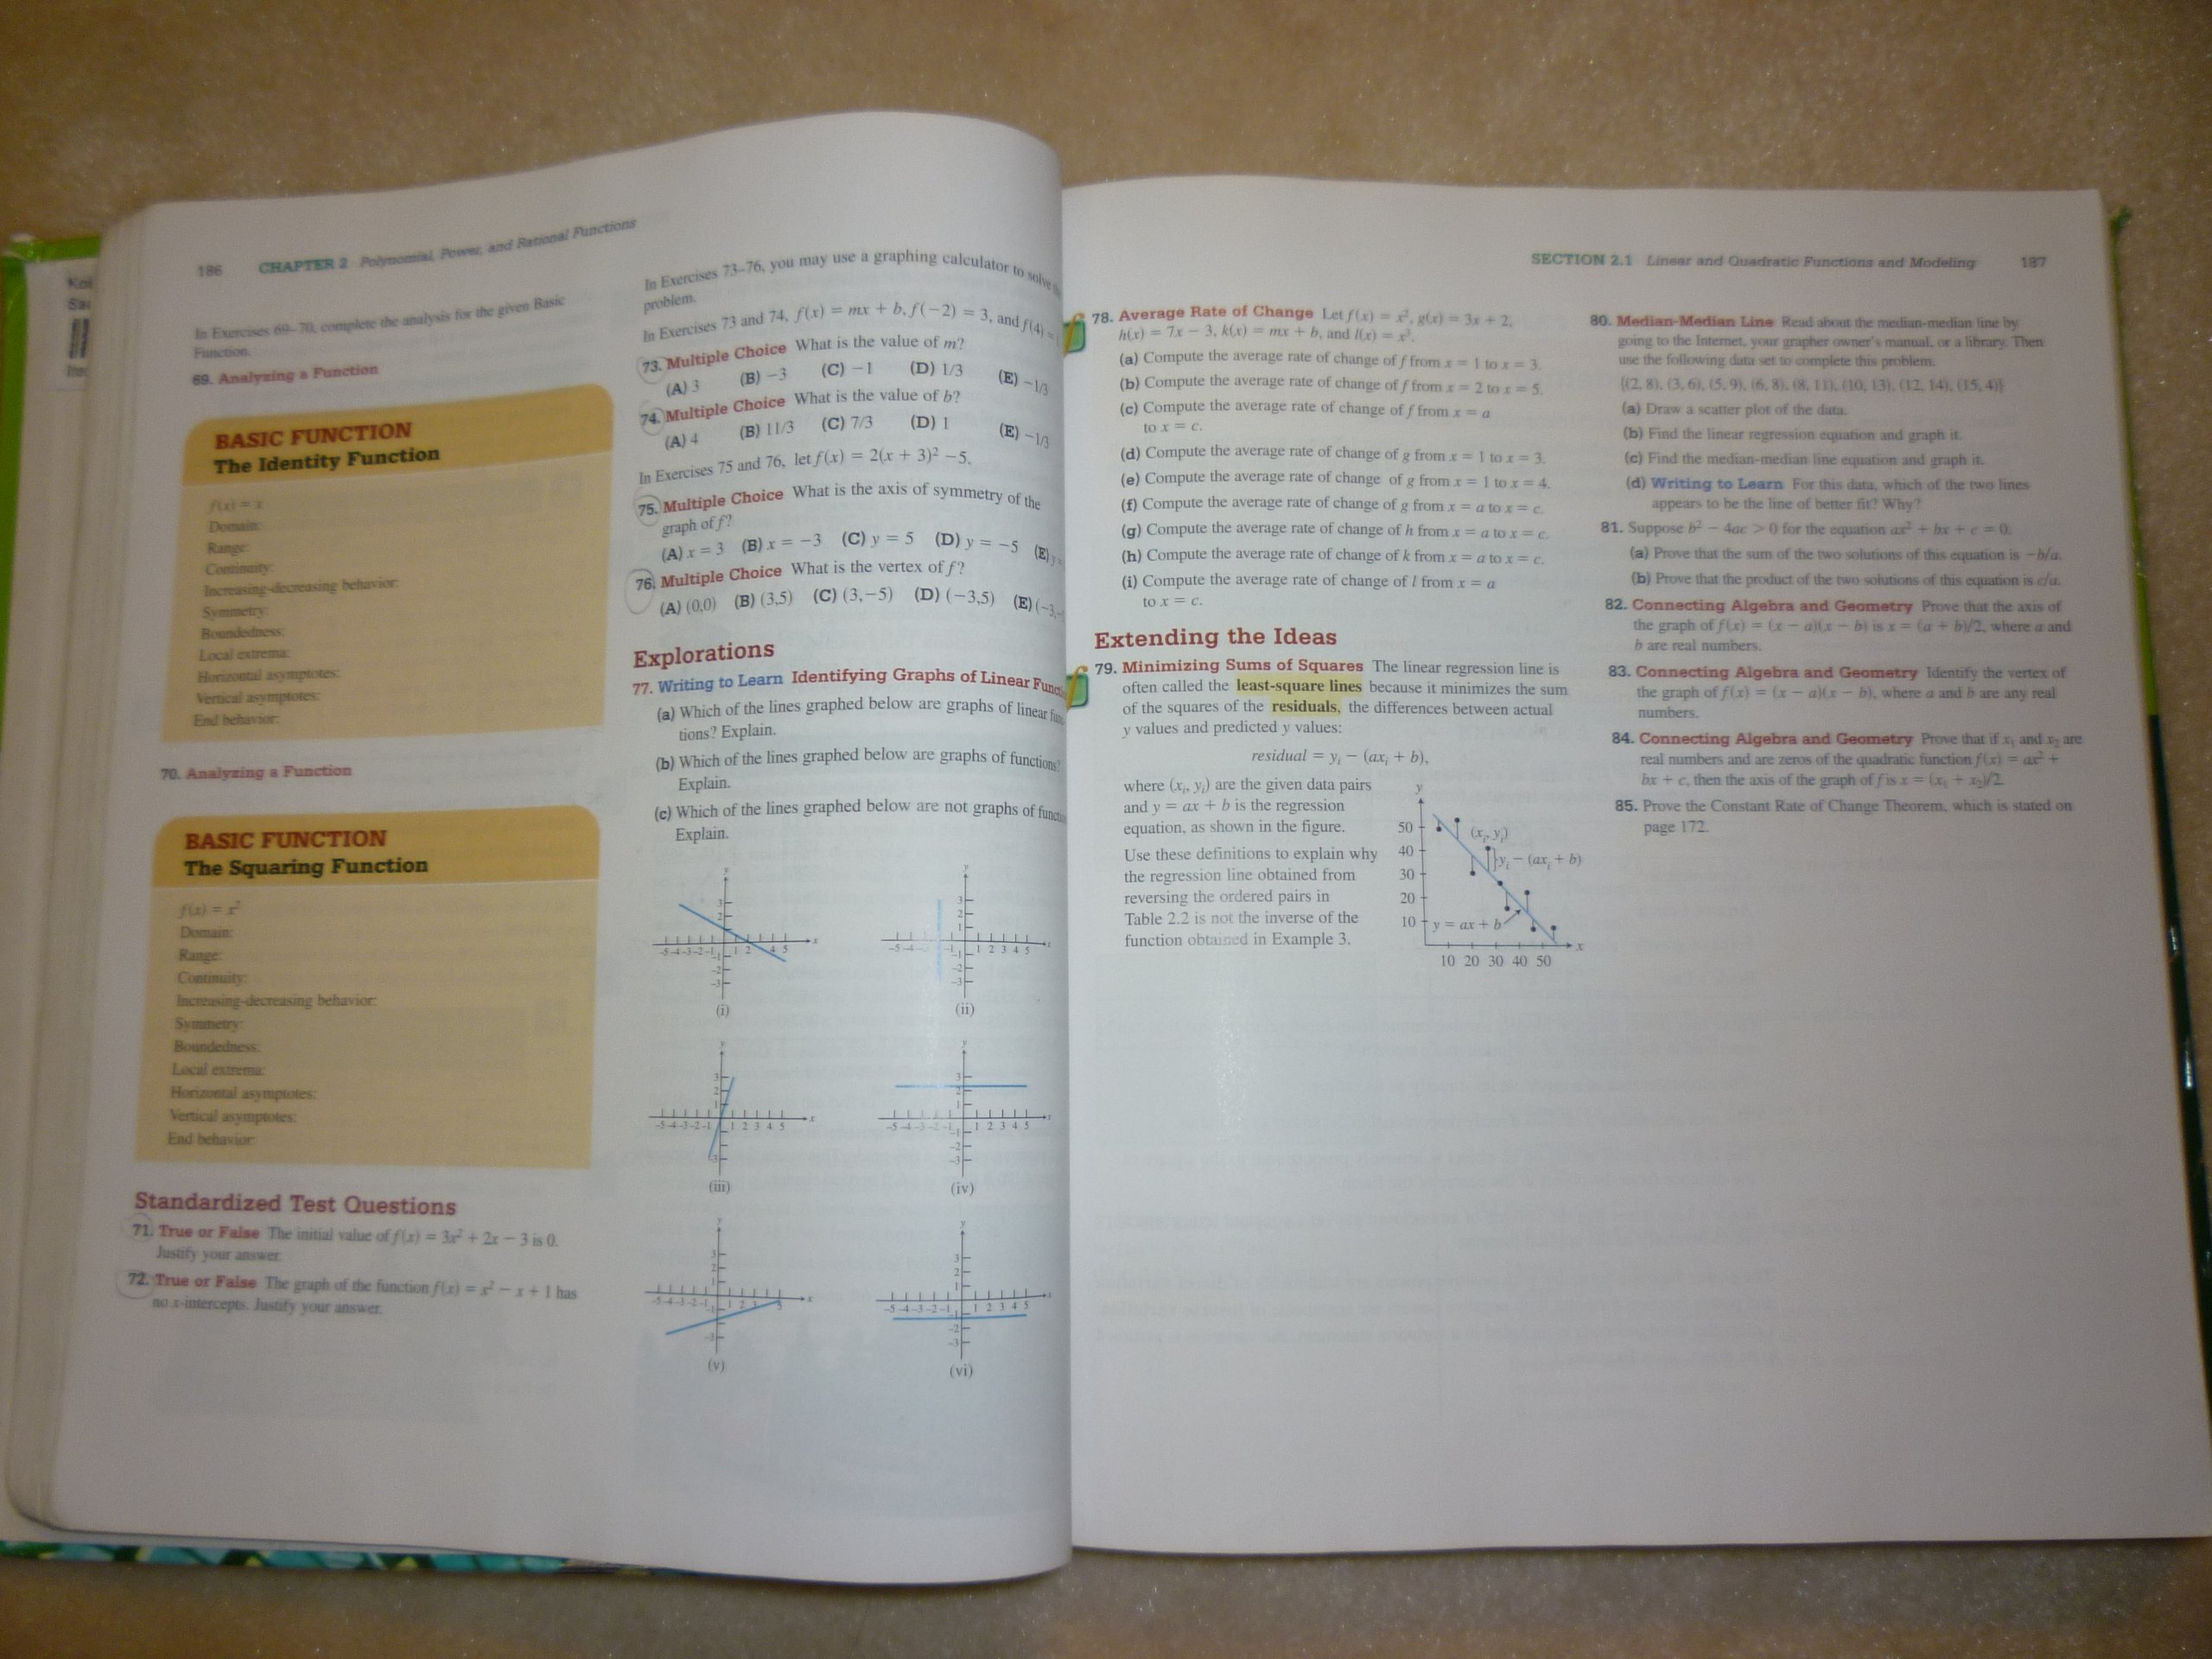 186 CHAPTER 2 Polynomial, Power, and Rational Functions
In Exercises 69–70, complete the analysis for the given Basic
Function.
69. Analyzing a Function
BASIC FUNCTION
The Identity Function
f(x) = x
Domain:
Range:
Continuity:
Increasing-decreasing behavior:
Symmetry:
Boundedness:
Local extrema:
Horizontal asymptotes:
Vertical asymptotes:
End behavior:
70. Analyzing a Function
BASIC FUNCTION
The Squaring Function
f(x) = x²
Domain:
Range:
Continuity:
Increasing-decreasing behavior:
Symmetry:
Boundedness:
Local extrema:
Horizontal asymptotes:
Vertical asymptotes:
End behavior:
Standardized Test Questions
71. True or False The initial value of f(x) = 3x² + 2x − 3 is 0.
Justify your answer.
72. True or False The graph of the function f(x) = x² − x + 1 has
no x-intercepts. Justify your answer.
In Exercises 73–76, you may use a graphing calculator to solve
problem.
In Exercises 73 and 74, f(x) = mx + b, f(−2) = 3, and f(4) =
73. Multiple Choice What is the value of m?
(A) 3 (B) −3 (C) −1 (D) 1/3 (E) −1/3
74. Multiple Choice What is the value of b?
(A) 4 (B) 11/3 (C) 7/3 (D) 1 (E) −1/3
In Exercises 75 and 76, let f(x) = 2(x + 3)² −5.
75. Multiple Choice What is the axis of symmetry of the
graph of f?
(A) x = 3 (B) x = −3 (C) y = 5 (D) y = −5 (E) y
76. Multiple Choice What is the vertex of f?
(A) (0,0) (B) (3,5) (C) (3,−5) (D) (−3,5) (E) (−3,
Explorations
77. Writing to Learn Identifying Graphs of Linear
(a) Which of the lines graphed below are graphs of linear
tions? Explain.
(b) Which of the lines graphed below are graphs of functions?
Explain.
(c) Which of the lines graphed below are not graphs of
Explain.
(i)
(ii)
(iii)
(iv)
(v)
(vi)
SECTION 2.1 Linear and Quadratic Functions and Modeling 187
78. Average Rate of Change Let f(x) = x², g(x) = 3x + 2,
h(x) = 7x − 3, k(x) = mx + b, and l(x) = x³.
(a) Compute the average rate of change of f from x = 1 to x = 3.
(b) Compute the average rate of change of f from x = 2 to x = 5.
(c) Compute the average rate of change of f from x = a
to x = c.
(d) Compute the average rate of change of g from x = 1 to x = 3.
(e) Compute the average rate of change of g from x = 1 to x = 4.
(f) Compute the average rate of change of g from x = a to x = c.
(g) Compute the average rate of change of h from x = a to x = c.
(h) Compute the average rate of change of k from x = a to x = c.
(i) Compute the average rate of change of l from x = a
to x = c.
Extending the Ideas
79. Minimizing Sums of Squares The linear regression line is
often called the least-square lines because it minimizes the sum
of the squares of the residuals, the differences between actual
y values and predicted y values:
residual = yᵢ − (axᵢ + b),
where (xᵢ, yᵢ) are the given data pairs
and y = ax + b is the regression
equation, as shown in the figure.
Use these definitions to explain why
the regression line obtained from
reversing the ordered pairs in
Table 2.2 is not the inverse of the
function obtained in Example 3.
y
50
40
30
20
10
(xᵢ, yᵢ)
yᵢ − (axᵢ + b)
y = ax + b
x
10 20 30 40 50
80. Median-Median Line Read about the median-median line by
going to the Internet, your grapher owner's manual, or a library. Then
use the following data set to complete this problem.
{(2, 8), (3, 6), (5, 9), (6, 8), (8, 11), (10, 13), (12, 14), (15, 4)}
(a) Draw a scatter plot of the data.
(b) Find the linear regression equation and graph it.
(c) Find the median-median line equation and graph it.
(d) Writing to Learn For this data, which of the two lines
appears to be the line of better fit? Why?
81. Suppose b² − 4ac > 0 for the equation ax² + bx + c = 0.
(a) Prove that the sum of the two solutions of this equation is −b/a.
(b) Prove that the product of the two solutions of this equation is c/a.
82. Connecting Algebra and Geometry Prove that the axis of
the graph of f(x) = (x − a)(x − b) is x = (a + b)/2, where a and
b are real numbers.
83. Connecting Algebra and Geometry Identify the vertex of
the graph of f(x) = (x − a)(x − b), where a and b are any real
numbers.
84. Connecting Algebra and Geometry Prove that if x₁ and x₂ are
real numbers and are zeros of the quadratic function f(x) = ax² +
bx + c, then the axis of the graph of f is x = (x₁ + x₂)/2.
85. Prove the Constant Rate of Change Theorem, which is stated on
page 172.